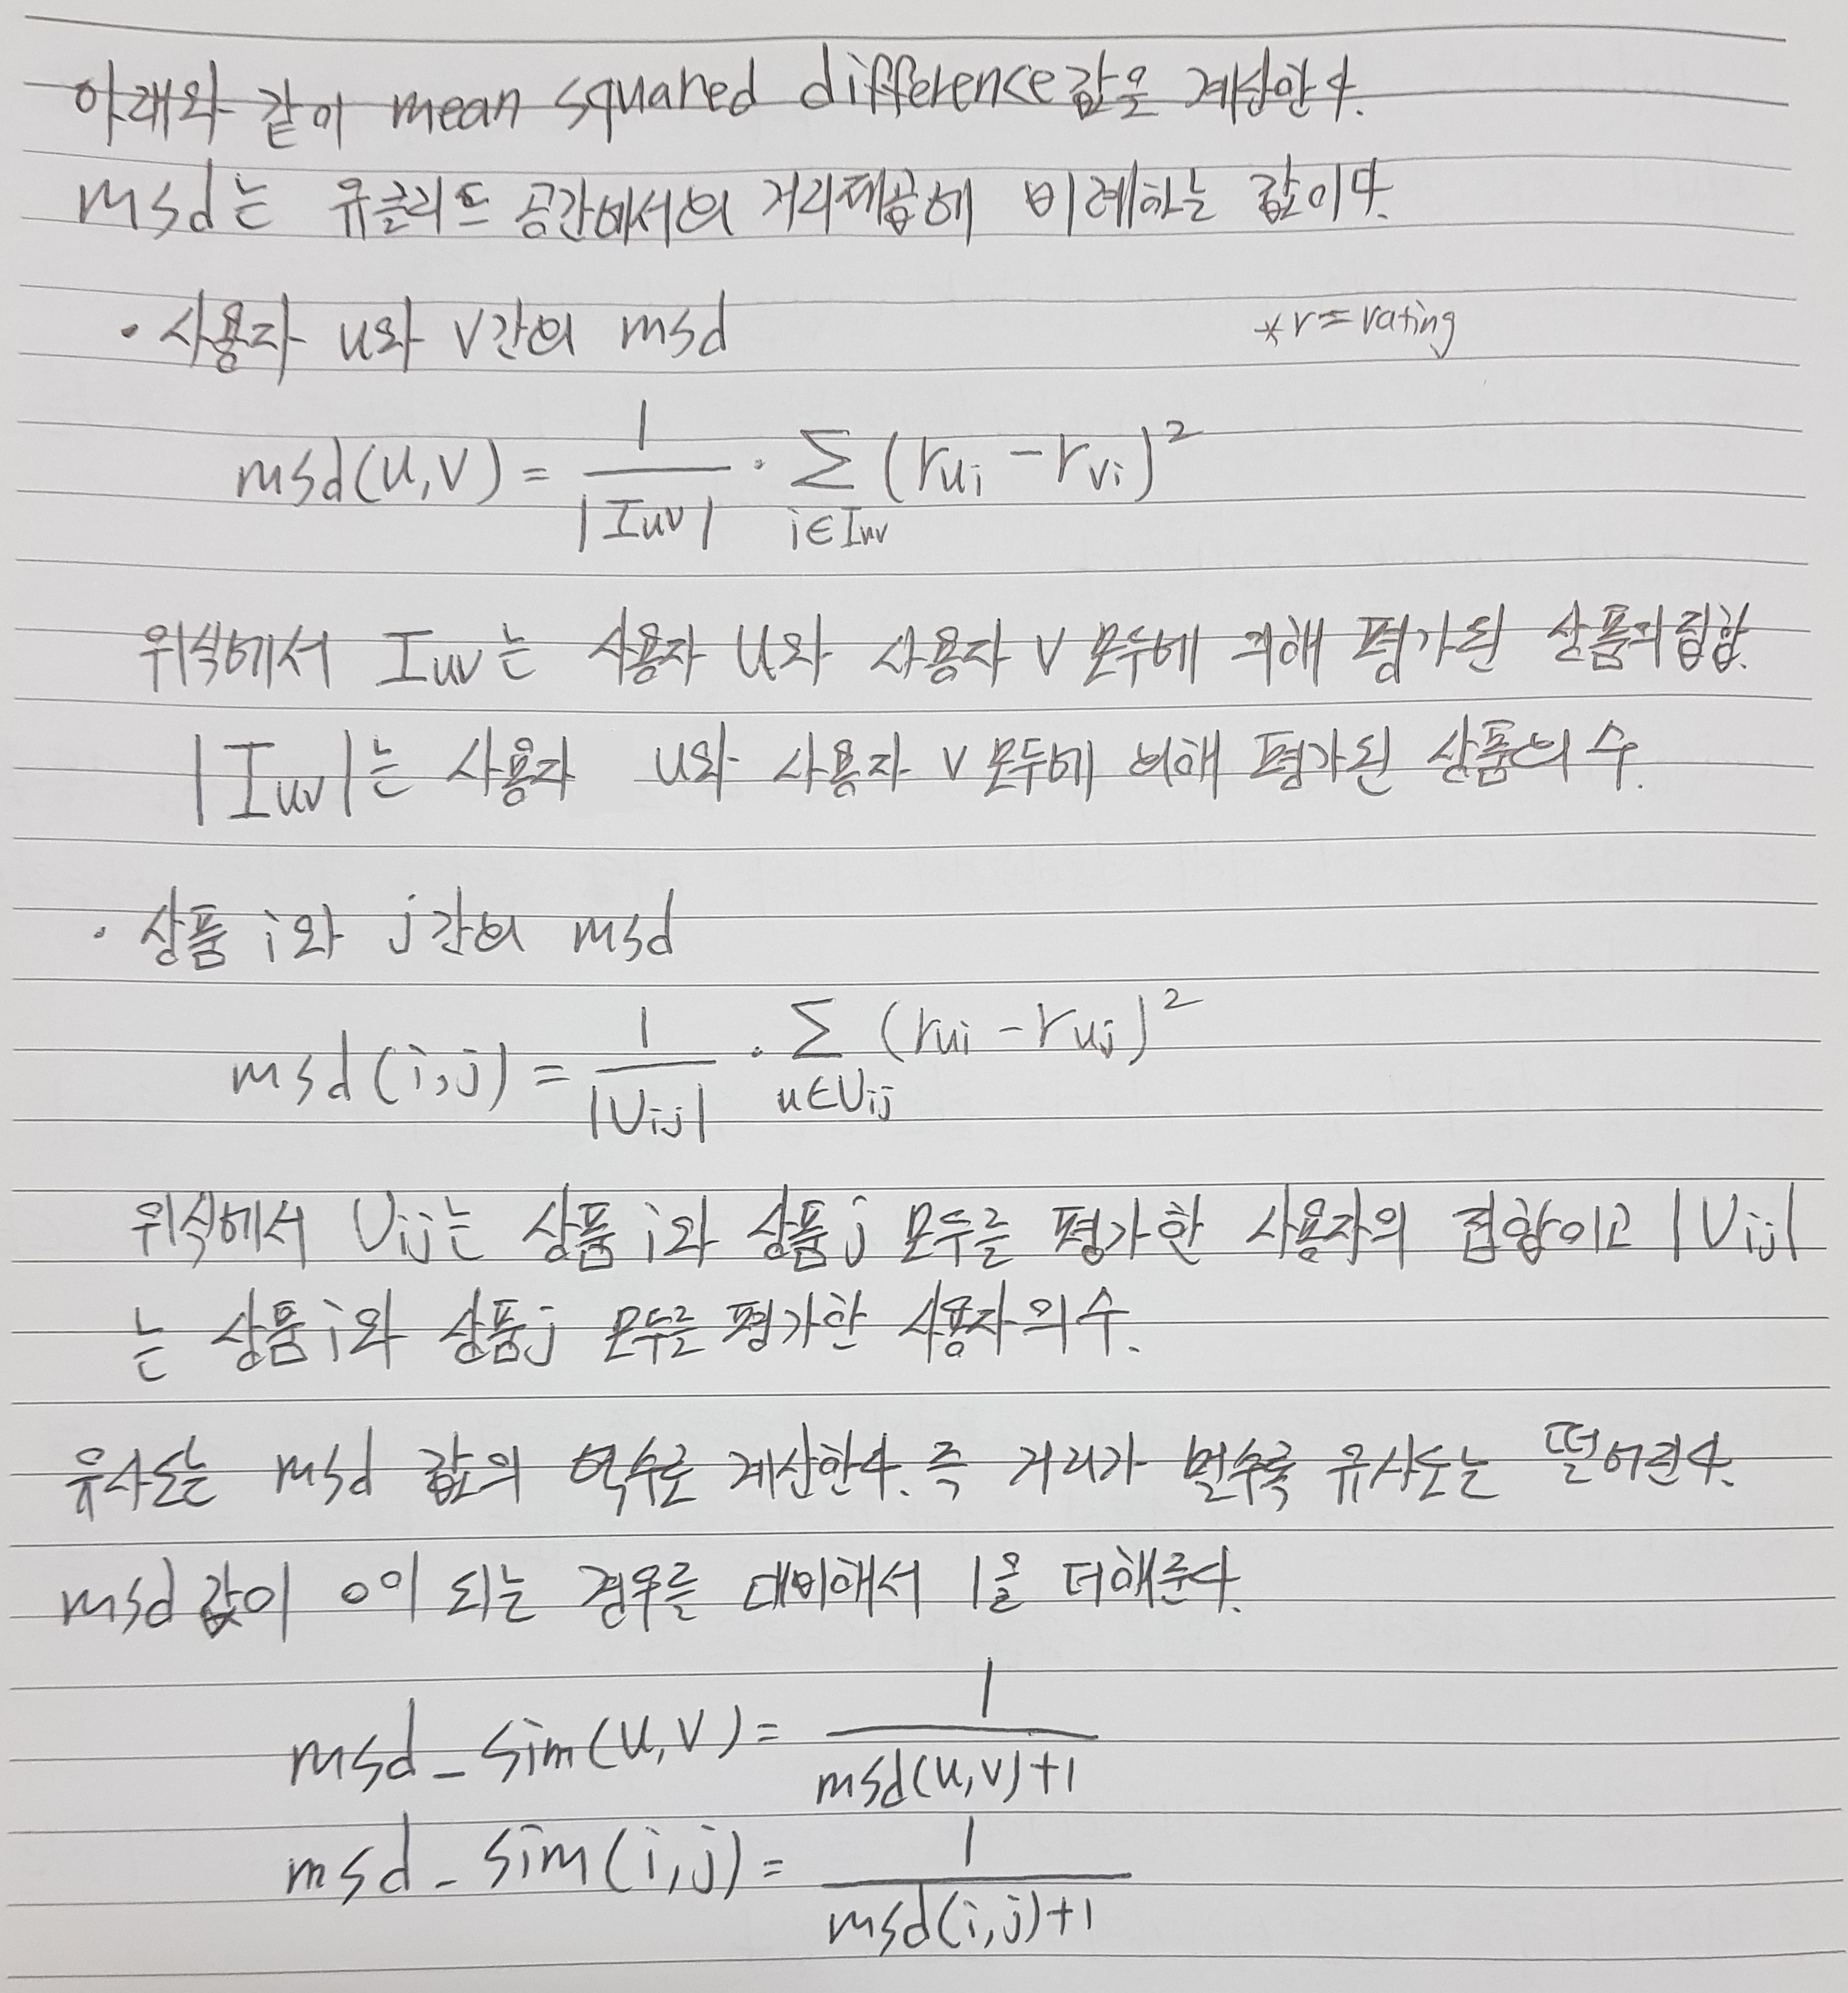 아래와 같이 mean squared difference값을 계산한다.
msd는 유클리드 공간에서의 거리제곱에 비례하는 값이다.
· 사용자 u와 v간의 msd *r=rating
msd(u,v) = 1/|Iuv| · Σ i∈Iuv (rui - rvi)²
위식에서 Iuv는 사용자 u와 사용자 v 모두에 의해 평가된 상품의 집합.
|Iuv|는 사용자 u와 사용자 v 모두에 의해 평가된 상품의 수.
· 상품 i와 j간의 msd
msd(i,j) = 1/|Uij| · Σ u∈Uij (rui - ruj)²
위식에서 Uij는 상품 i와 상품 j 모두를 평가한 사용자의 집합이고 |Uij|
는 상품 i와 상품 j 모두를 평가한 사용자의 수.
유사도는 msd 값의 역수로 계산한다. 즉 거리가 멀수록 유사도는 떨어진다.
msd값이 0이 되는 경우를 대비해서 1을 더해준다.
msd_sim(u,v) = 1/msd(u,v)+1
msd_sim(i,j) = 1/msd(i,j)+1